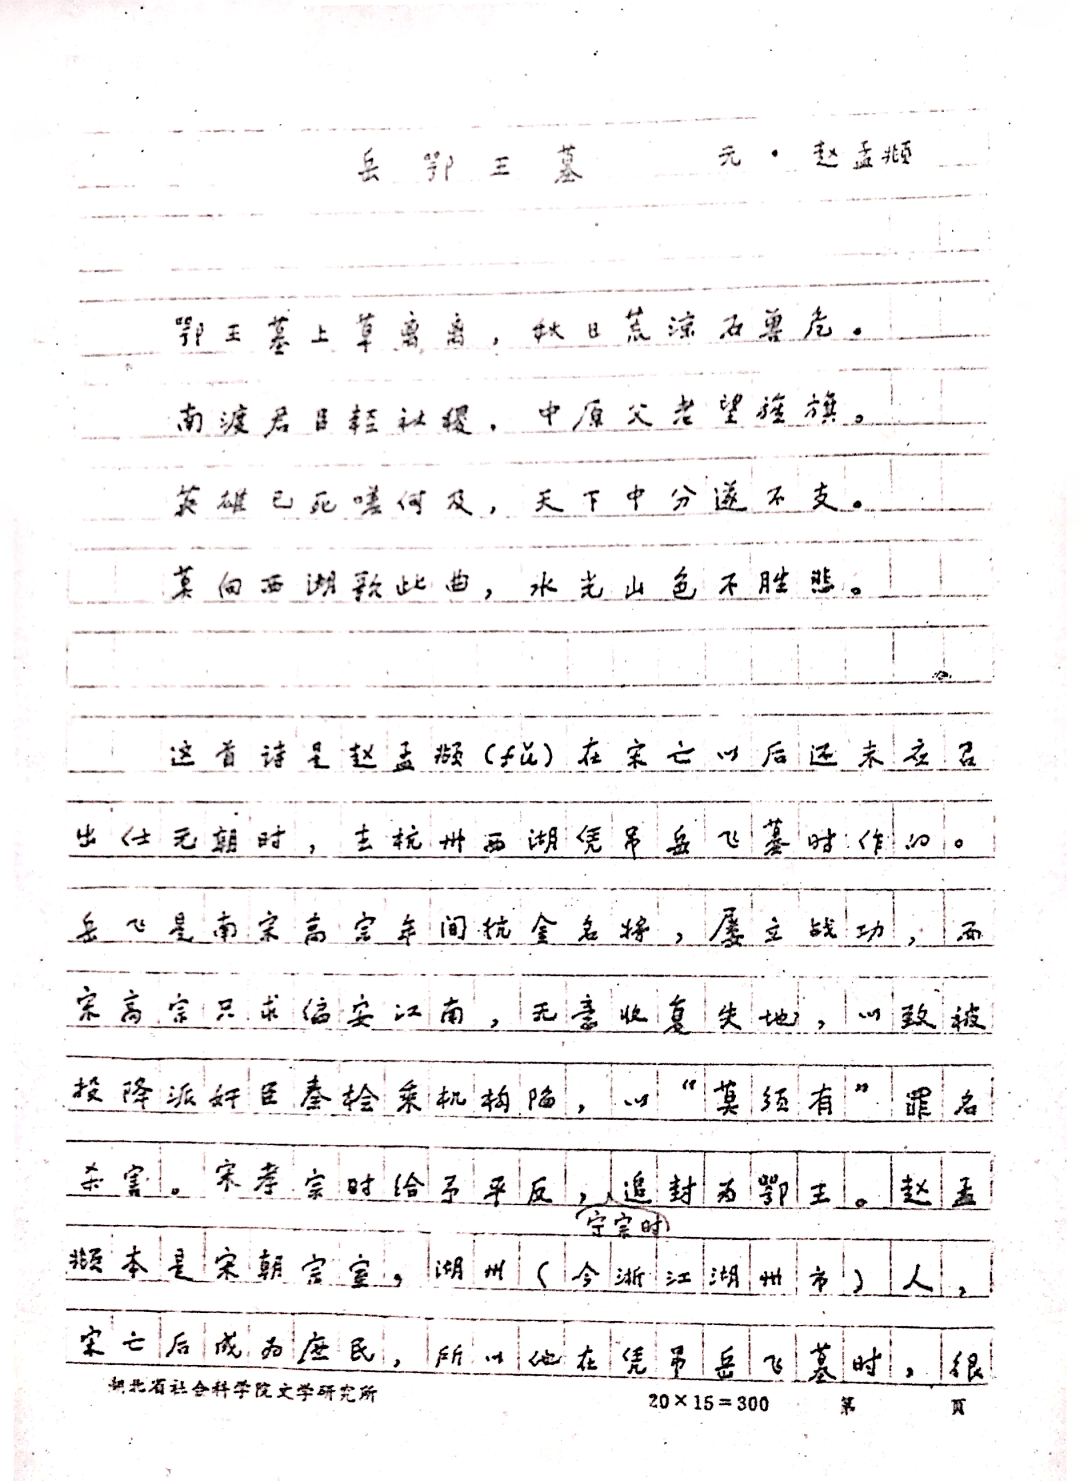 岳鄂王墓 元·赵孟頫
鄂王墓上草离离，秋日荒凉石兽危。
南渡君臣轻社稷，中原父老望旌旗。
英雄已死嗟何及，天下中分遂不支。
莫向西湖歌此曲，水光山色不胜悲。
这首诗是赵孟頫(fǔ)在宋亡以后还未应召
出仕元朝时，去杭州西湖凭吊岳飞墓时作的。
岳飞是南宋高宗年间抗金名将，屡立战功，而
宋高宗只求偏安江南，无意收复失地，以致被
投降派奸臣秦桧乘机构陷，以“莫须有”罪名
杀害。宋孝宗时给予平反，追封为鄂王。赵孟
宁宗时
頫本是宋朝宗室，湖州（今浙江湖州市）人，
宋亡后成为庶民，所以他在凭吊岳飞墓时，很
湖北省社会科学院文学研究所 20×15=300 第 页